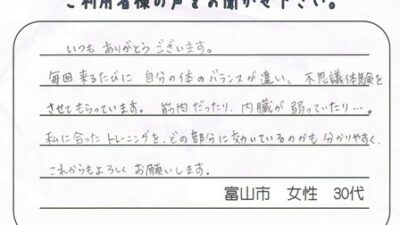 ご利用者様の声をお聞かせ下さい。
いつも ありがとうございます。
毎回 来るたびに 自分の体のバランスが違い、不思議体験を
させてもらっています。 筋肉だったり、内臓が 弱っていたり…。
私に合ったトレーニングを、どの部分に効いているのかも 分かりやすく、
これからもよろしく お願いします。
富山市 女性 30代